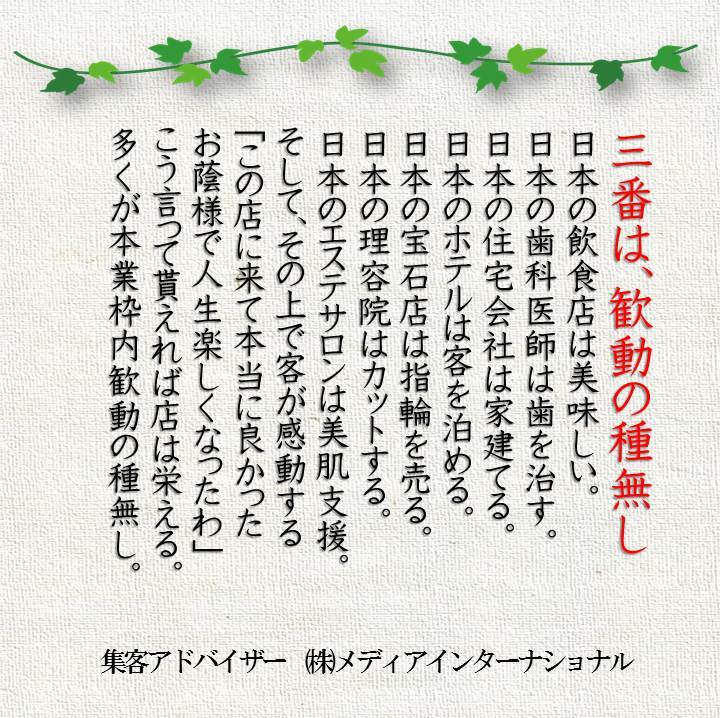 三番は、歓動の種無し
日本の飲食店は美味しい。
日本の歯科医師は歯を治す。
日本の住宅会社は家建てる。
日本のホテルは客を泊める。
日本の宝石店は指輪を売る。
日本の理容院はカットする。
日本のエステサロンは美肌支援。
そして、その上で客が感動する
「この店に来て本当に良かった
お蔭様で人生楽しくなったわ」
こう言って貰えれば店は栄える。
多くが本業枠内歓動の種無し。
集客アドバイザー ㈱メディアインターナショナル